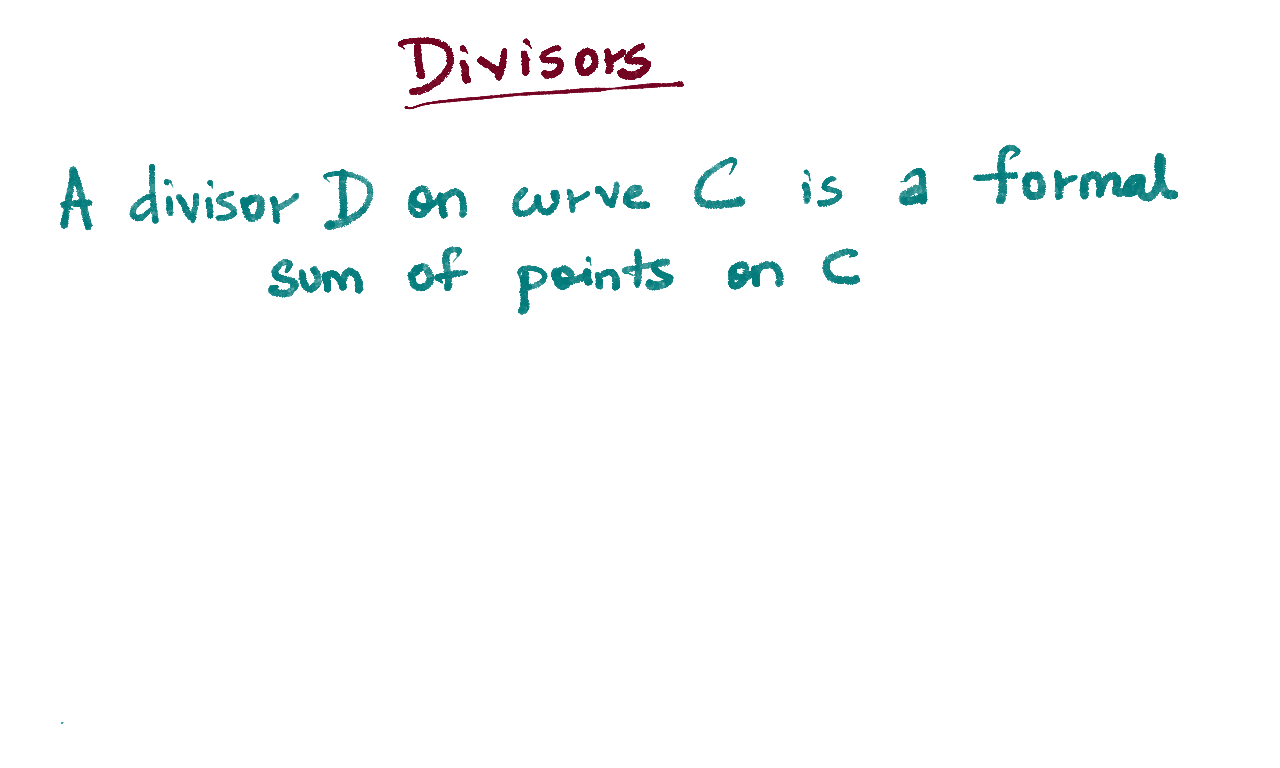 Divisors
A divisor D on curve C is a formal
sum of points on C